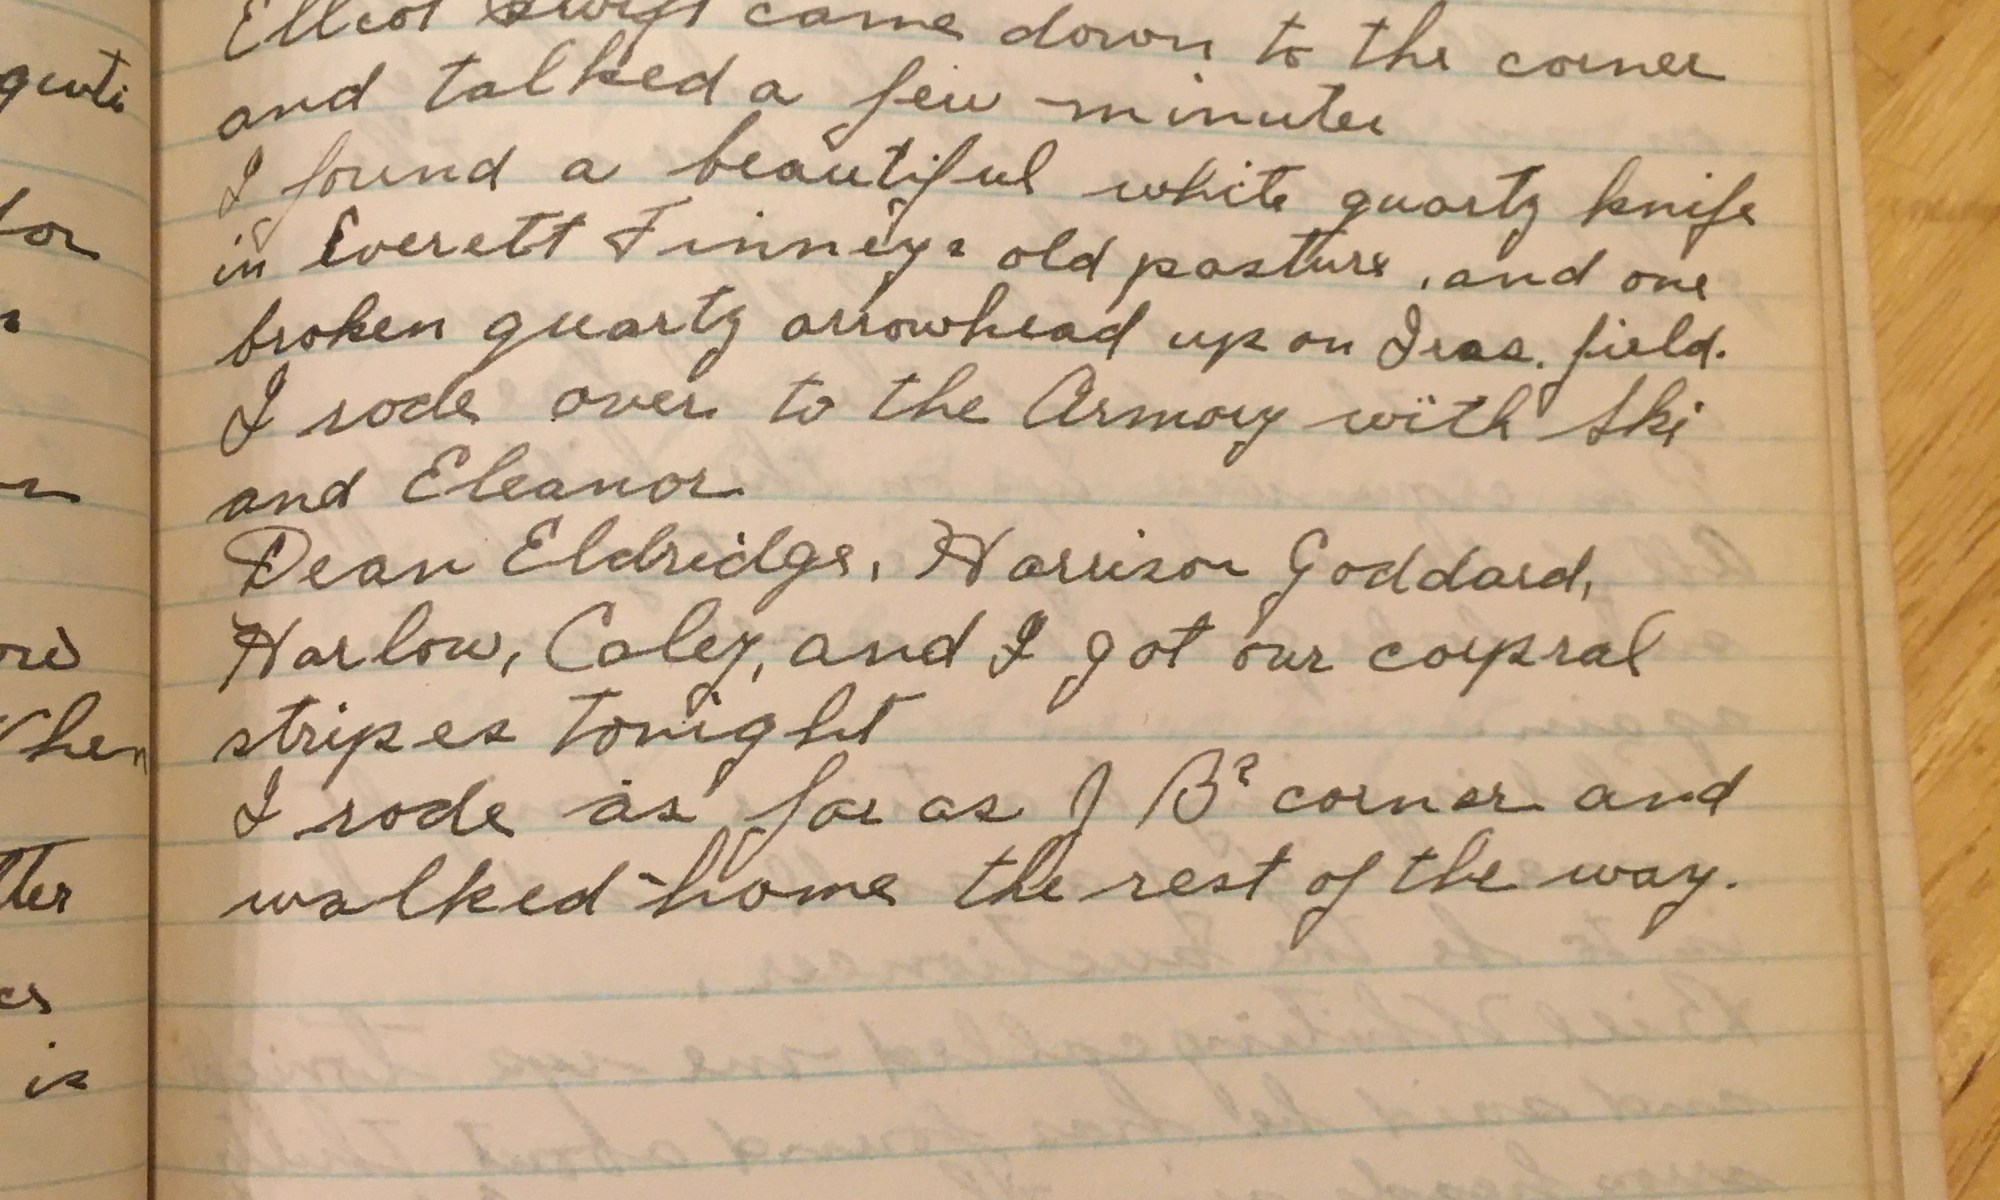 Elliot Swift came down to the corner
and talked a few minutes
I found a beautiful white quartz knife
in Everett Finneys old pasture, and one
broken quartz arrowhead up on Iras. field.
I rode over to the Armory with Ski
and Eleanor
Dean Eldridge, Harrison Goddard,
Harlow, Caley, and I got our corpral
stripes tonight
I rode as far as J Bs corner and
walked home the rest of the way.